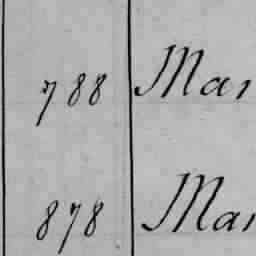 788 Mar
878 Mar